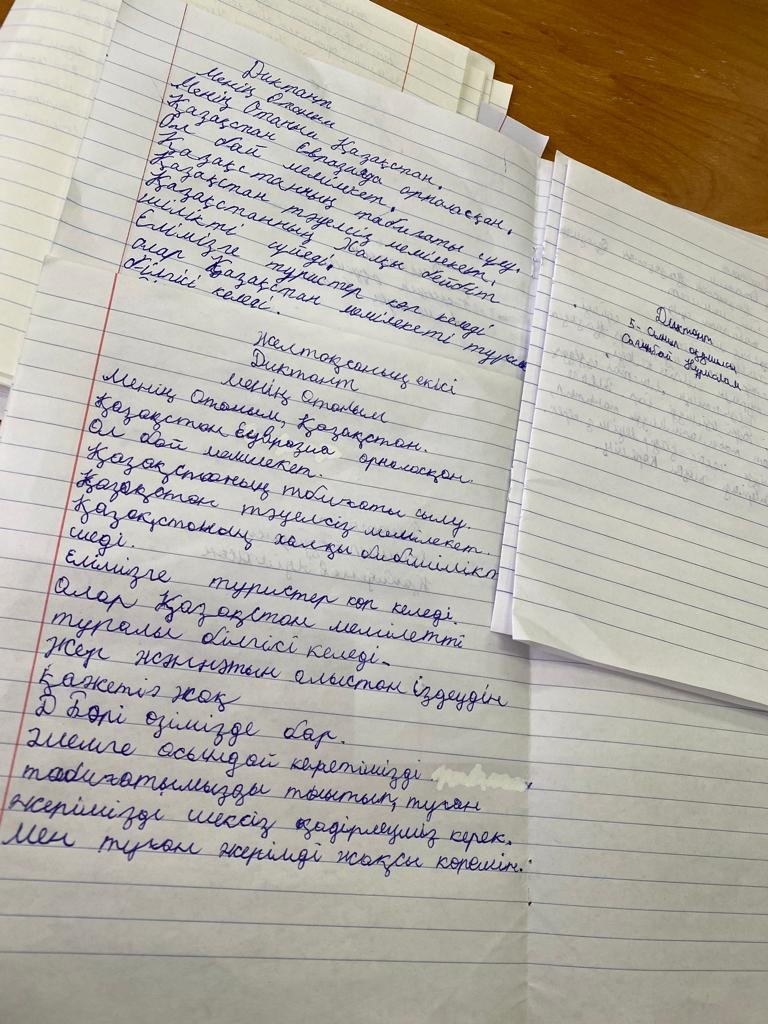 Диктант
Менің Отаным
Менің Отаным Қазақстан.
Қазақстан Евразияда орналасқан.
Ол бай мемлекет.
Қазақстанның табиғаты сұлу.
Қазақстан тәуелсіз мемлекет.
Қазақстанның Халқы бейбіт
шілікті сүйеді.
Елімізге туристер көп келеді
олар Қазақстан мемлекеті туралы
білгісі келеді.
Желтоқсаның екісі
Диктант
менің отаным
Менің Отаным, Қазақстан.
Қазақстан Еуврозиа орналасқан.
Ол бай мемлекет.
Қазақстаның табиғаты сылу.
Қазақстан тәуелсіз мемлекет.
Қазақстаның халқы
шеді.
Елімізге туристер көп келеді.
Олар Қазақстан
туралы білгісі келеді.
Жер жәннәтын алыстан іздеудін
қажетіз жоқ
Д Бәрі өзімізде бар.
Әлемге осындай керетімізді
табиғатымызды тоытып, туған
жерімізді шексіз қадірлеуміз керек.
Мен туған жерімді жақсы көремін.
Диктант
5- сынып оқушысы